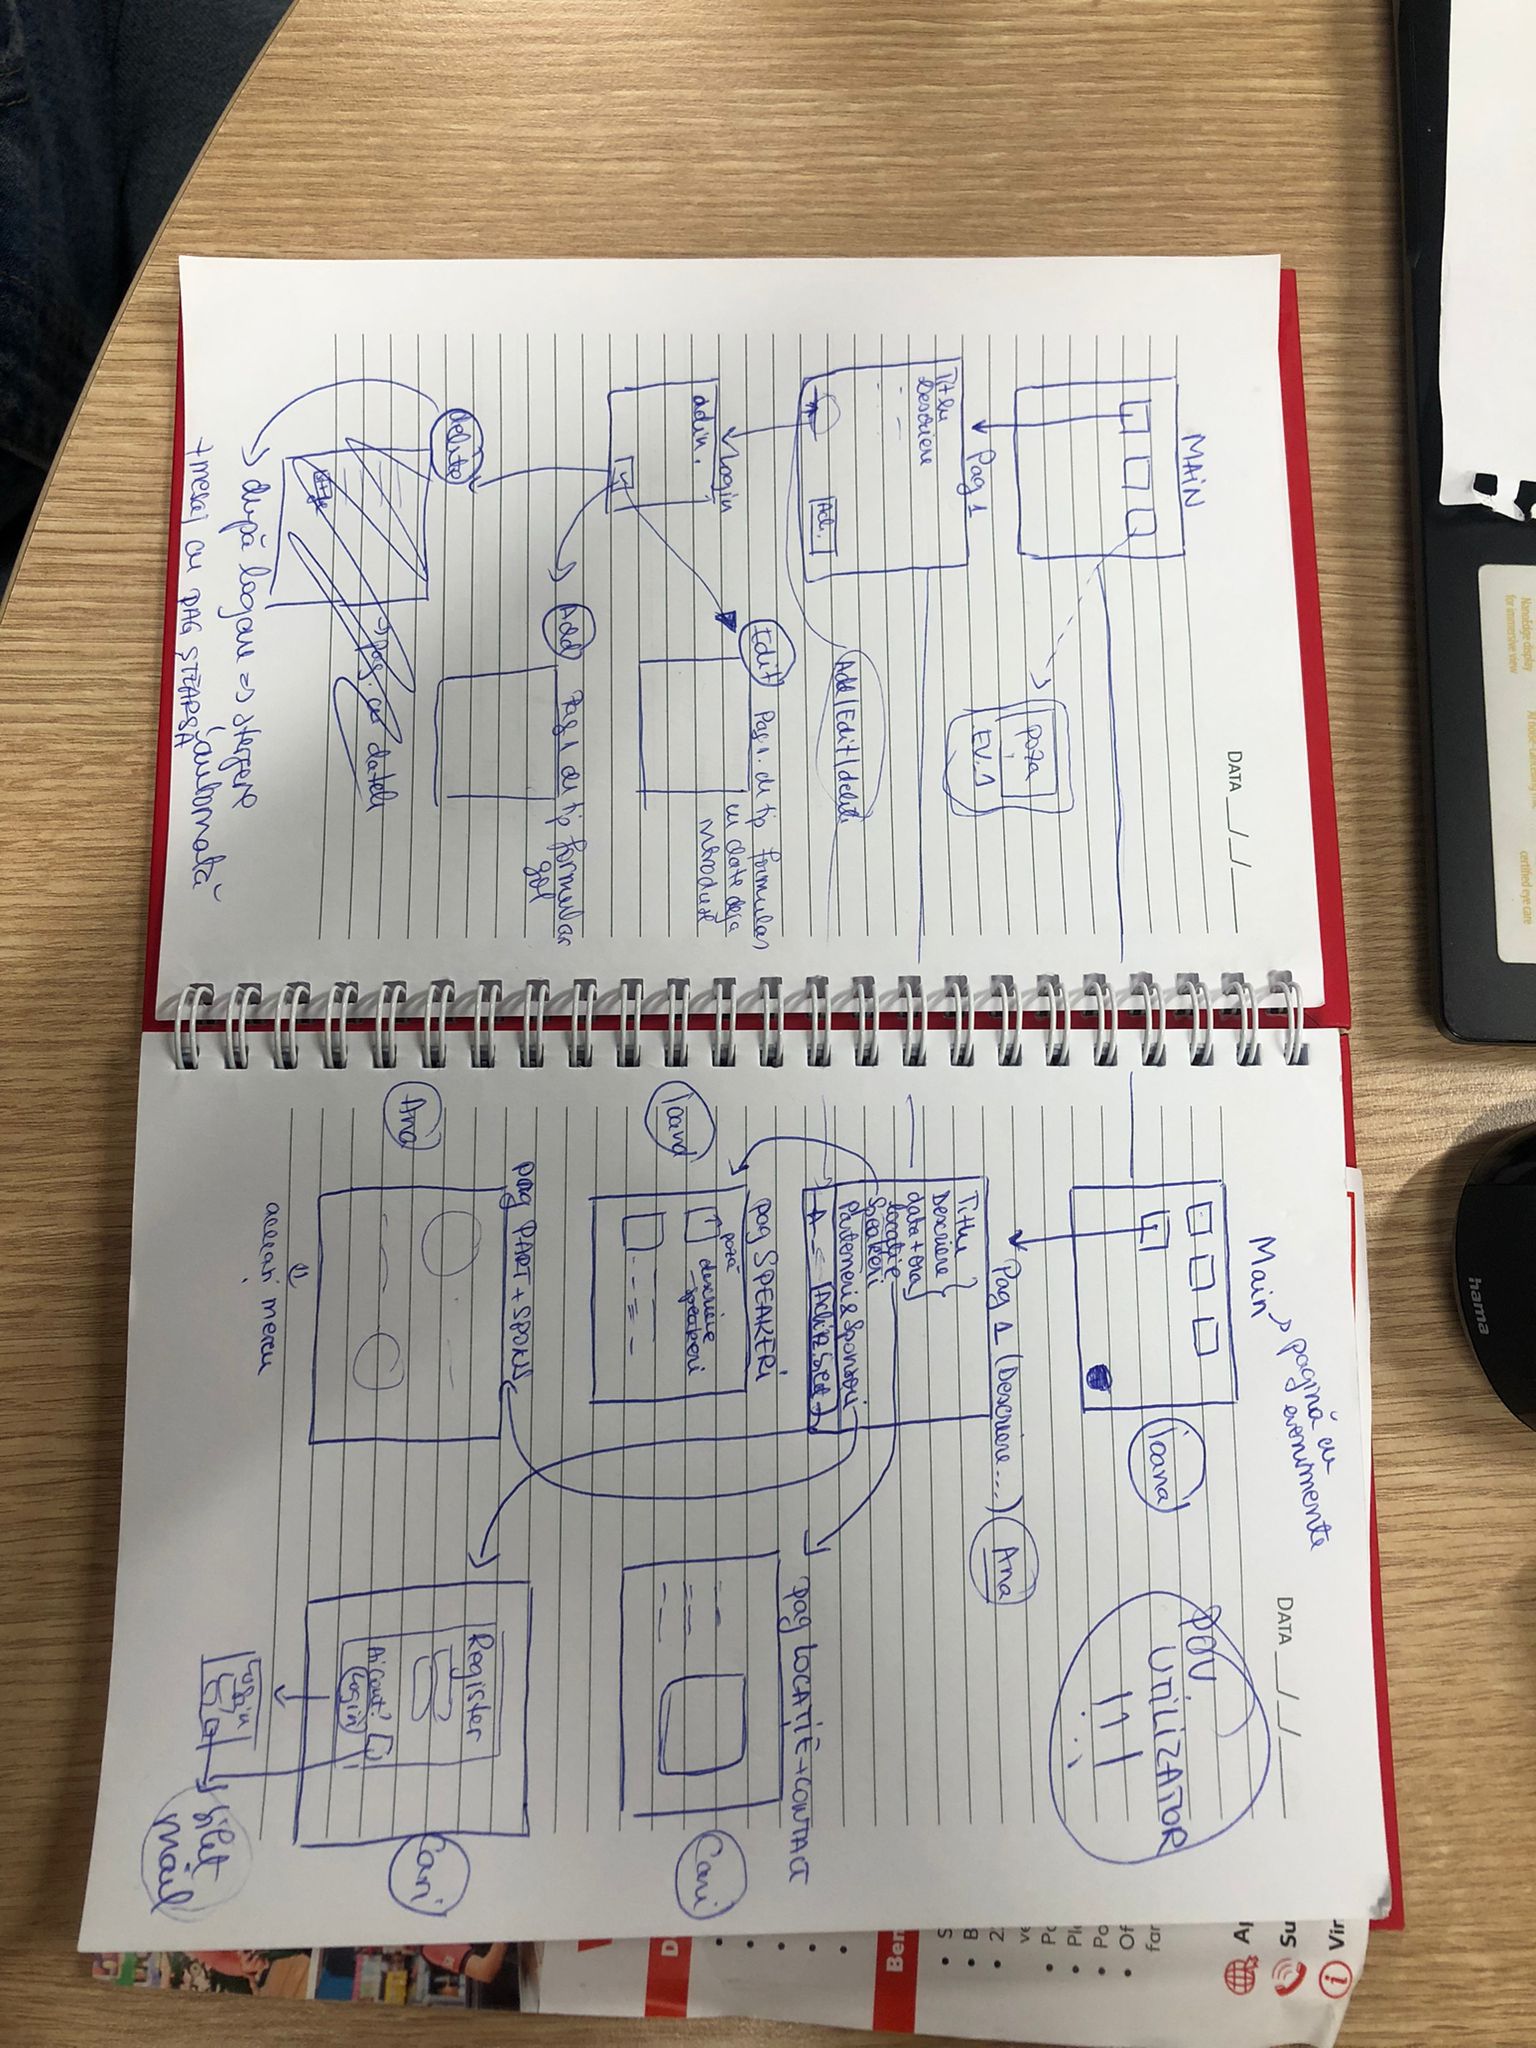 NanoEdge display
for immersive view
AI noise-cancelling mic
certified eye care
hama
DATA __/__/____
MAIN
poza
EV. 1
Pag 1
Titlu
Descriere
Add/Edit/delete
Ach.
Login
admin.
Edit
Pag 1. de tip formular
cu date deja
introduse
Add
Pag 1 de tip formular
gol
delete
pag. cu datele
după logare => ștergere
automată
+ mesaj cu PAG ȘTEARSĂ
Main → pagină cu
evenimente
DATA __/__/____
Ioana
POV.
UTILIZATOR
!!!
Pag 1 (Descriere...)
Ana
Titlu
Descriere
data + ora
locație
Speakeri
Parteneri & Sponsori
Achiz. bilet
pag LOCAȚIE + CONTACT
Cari
pag SPEAKERI
poză
descriere
speakeri
Ioana
pag PART + SPONS
Ana
aceeași mereu
Register
Ai cont?
Login
Cari
Login
bilet
mail